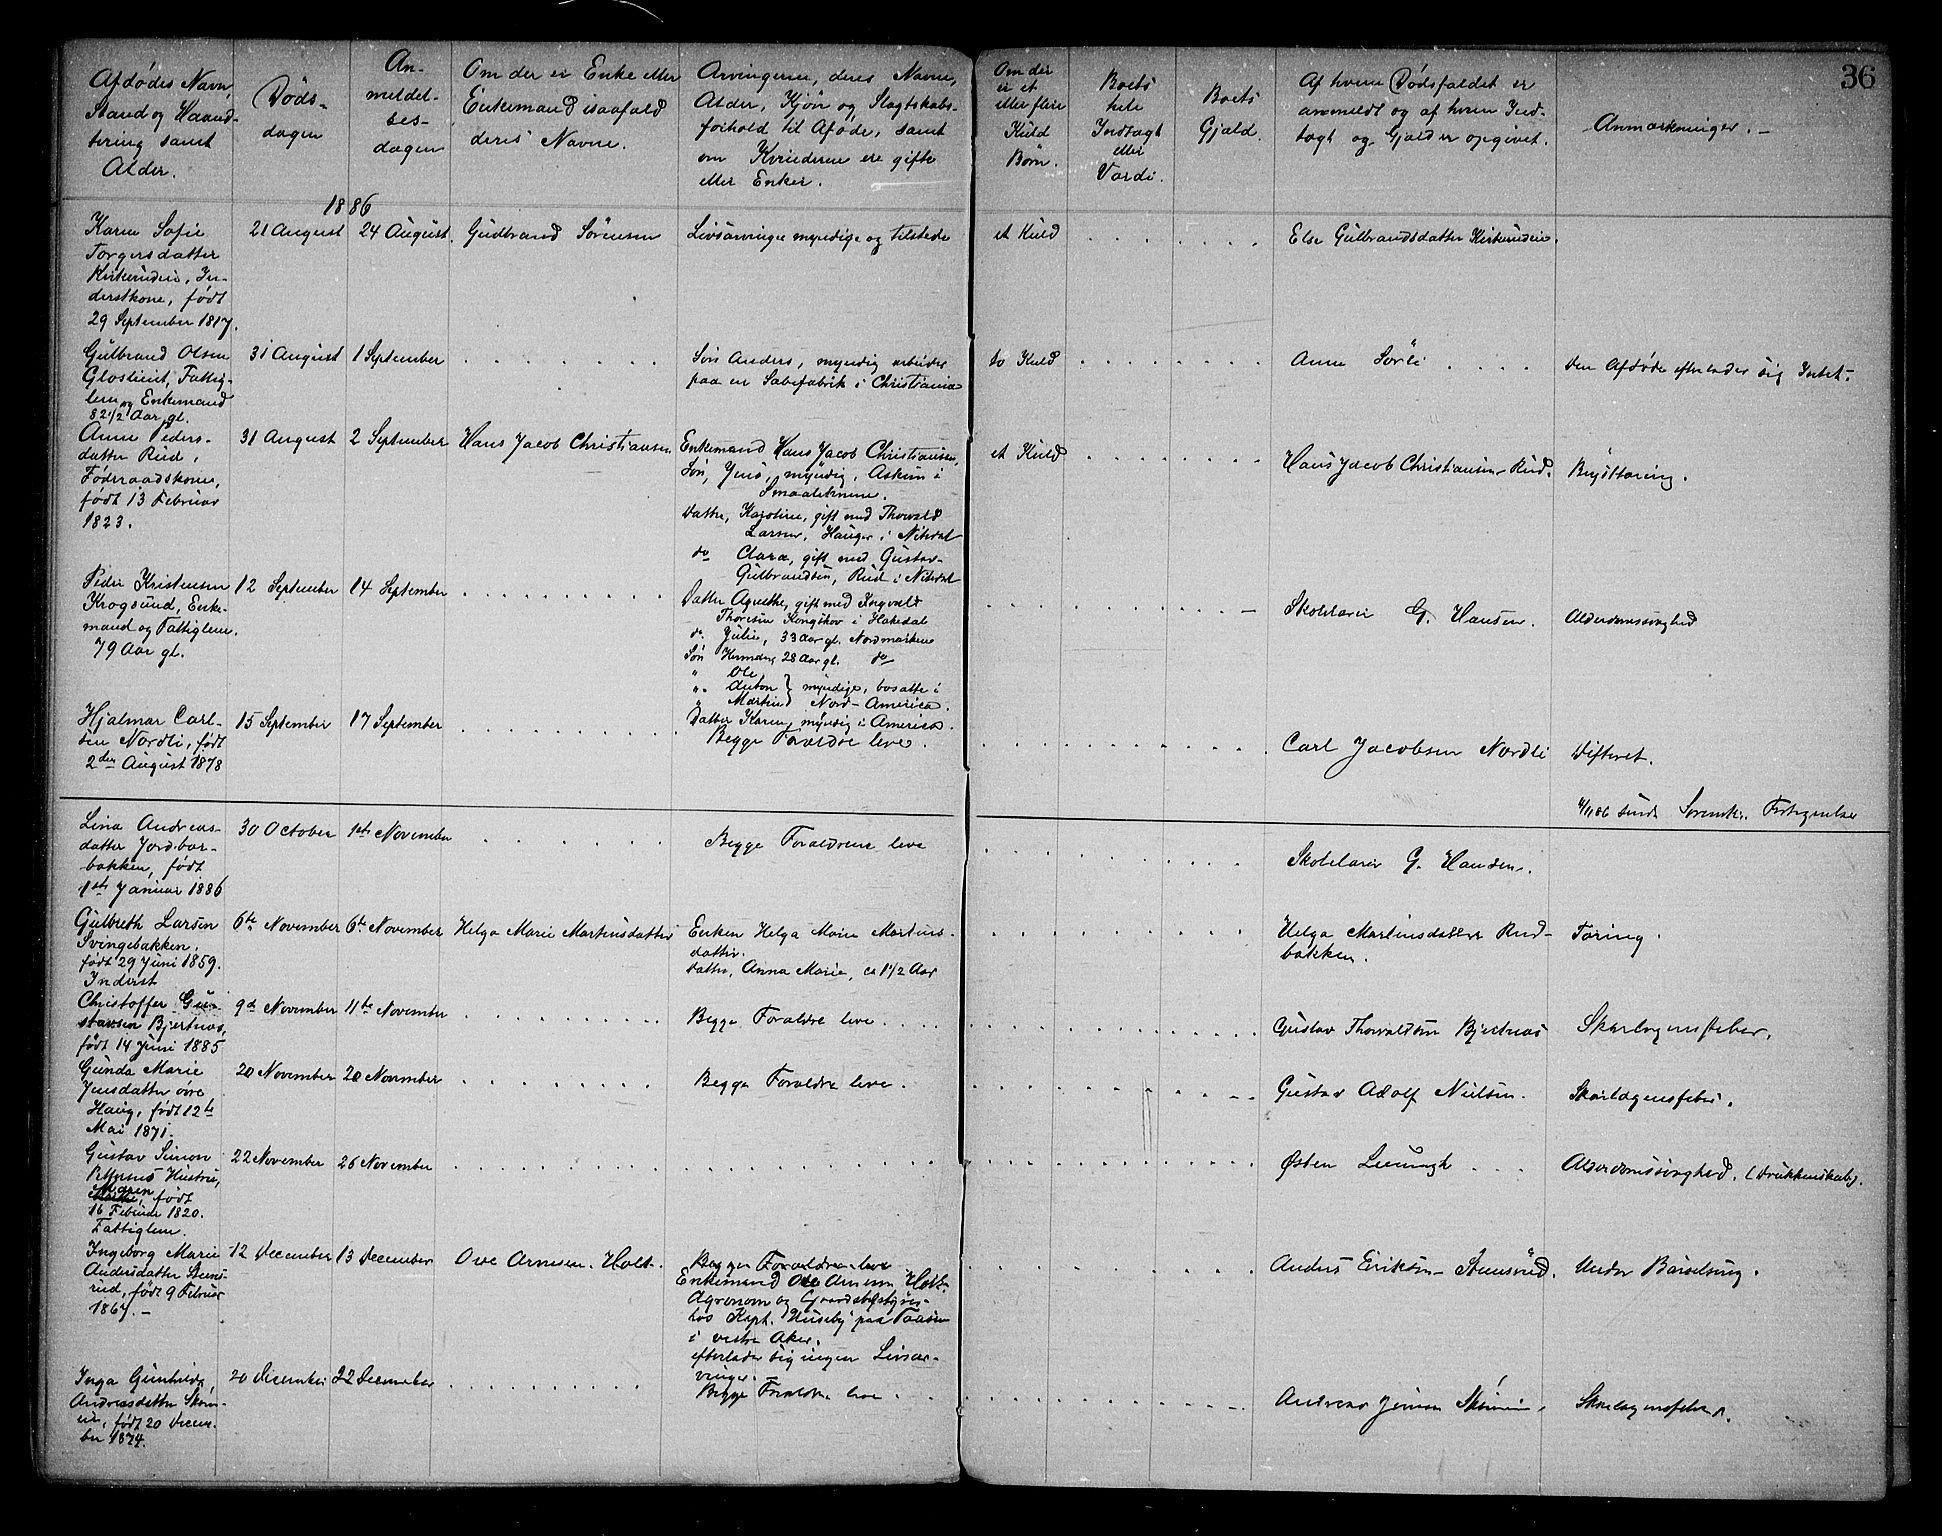 36
Afdødes Navn,
Stand og Haand-
tering samt
Alder.
Døds-
dagen
An-
meldel-
ses-
dagen
Om der er Enke eller
Enkemand isaafald
deres Navne.
Arvingerne, deres Navne,
Alder, Kjøn og Slagtskabs-
forhold til Afdøde, samt
om Kvinderne ere gifte
eller Enker.
Om der
er et
eller flere
Kuld
Børn.
Boets
hele
Indtægt
eller
Værdi.
Boets
Gjæld.
Af hvem Dødsfaldet er
anmeldt og af hvem Ind-
tægt og Gjæld er opgivet.
Anmærkninger. -
1886
Karen Sofie
Torgersdatter
Kirkerudeie, In-
derstkone, født
29 September 1817.
21 August
24 August.
Gudbrand Sørensen
Livsarvinger myndige og tilstede
et Kuld
Else Gulbrandsdatter Kirkerudeie.
Gulbrand Olsen
Fattig-
lem og Enkemand
82 1/2 Aar gl.
31 August
1 September
Søn Anders, myndig arbeider
paa en Sæbefabrik i Christiania
to Kuld
Anne Sørli
Den Afdøde efterlader sig Intet.
Anne Peders-
datter Rud,
Føderaadskone,
født 13 Februar
1823.
31 August
2 September
Hans Jacob Christiansen
Enkemand Hans Jacob Christiansen,
Søn, Jens, myndig, Askim i
Smaalenene.
Datter, Karoline, gift med Thorvald
Larsen, Hauger i Nitedal
do Clara, gift med Gustav
Gulbrandsen, Rud i Nitedal
et Kuld
Hans Jacob Christiansen Rud.
Brysttæring.
Peder Kristensen
Krogsund, Enke-
mand og Fattiglem.
79 Aar gl.
12 September
14 September
Datter Agnethe, gift med Ingvald
Thoresen Kongskov i Hakedal
do. Julie, 33 Aar gl. Nordmarken
Søn 28 Aar gl. do
" Ole
" Anton } myndige, bosatte i
" Martin Nord-America.
Datter Karen, myndig i America.
Skolelærer G. Hansen.
Alderdomssvaghed
Hjalmar Carl-
sen Nordli, født
2den August 1878
15 September
17 September
Begge Forældre leve.
Carl Jacobsen Nordli
Difterit.
4/11 86 sendt Sorensk. Fortegnelse
Lina Andreas-
datter Jordbær-
bakken, født
1ste Januar 1886
30 October
1ste November
Begge Forældrene leve
Skolelærer G. Hansen.
Gulbreth Larsen
Svingebakken,
født 29 Juni 1859.
Inderst
6te November
6te November
Helga Marie Martinsdatter
Enken Helga Marie Martins-
datter.
Datter, Anna Marie, ca 1 1/2 Aar
Helga Martinsdatter Rud-
bakken.
Tæring.
Christoffer Gu-
stavsen Bjertnæs,
født 14 Juni 1885
9de November
11te November
Begge Forældre leve.
Gustav Thorvaldsen Bjertnæs
Skarlagensfeber.
Gunda Marie
Jensdatter øvre
Haug, født 12te
Mai 1871.
20 November
20 November
Begge Forældre leve.
Gustav Adolf Nielsen.
Skarlagensfeber.
Gustav Simon
Hustru,
Maren, født
16 Februar 1820.
Fattiglem.
22 November
26 November
Østen
Alderdomssvaghed. (Drukkenskab).
Ingeborg Marie
Andersdatter Stens-
rud, født 9 Februar
1867. -
12 December
13 December
Ove Arnesen Holt.
Begge Forældre leve
Enkemand Ove Arnesen Holt.
Agronom og Gaardsbestyrer
hos Kapt. Huseby paa Taasen
i vestre Aker.
efterlader sig ingen Livsar-
vinger.
Anders Eriksen Stensrud.
Under Barselseng.
Inga Gunhilde
Andreasdatter
født 20 Decem-
ber 1874.
20 December
22 December
Begge Forældre leve.
Andreas Jensen
Skarlagensfeber.